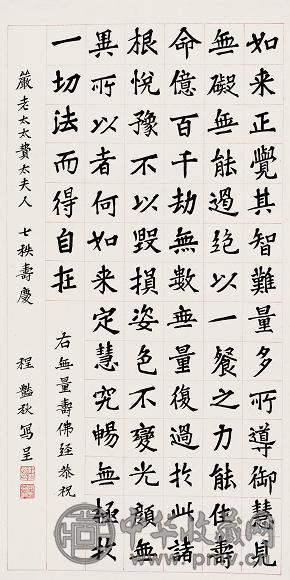 如来正覺其智難量多所導御慧見
無礙無能遏絕以一餐之力能住壽
命億百千劫無數無量復過於此諸
根悅豫不以毀損姿色不變光顏無
異所以者何如来定慧究暢無極於
一切法而得自在
右無量壽佛經恭祝
嚴老太太費太夫人 七秩壽慶
程豔秋寫呈
中华收藏网